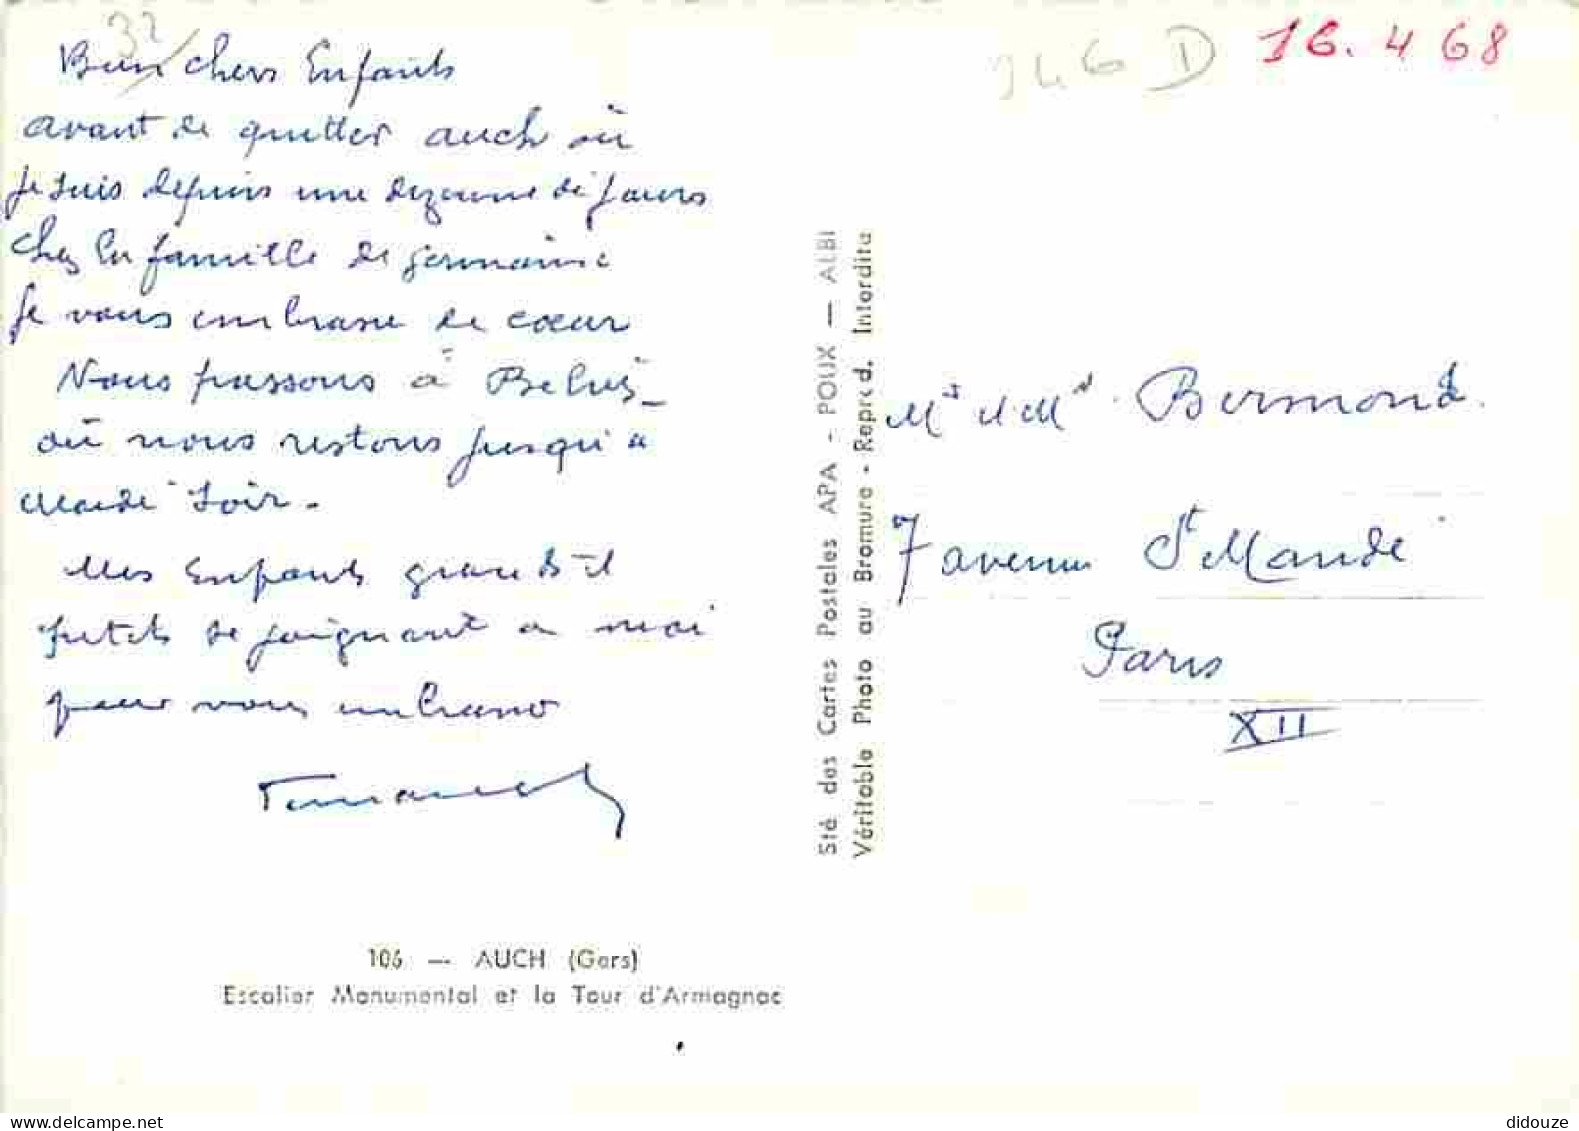 32
Bien chers Enfants
avant de quitter auch où
je suis depuis une dezaine de jours
chez la famille de germaine
je vous embrasse de cœur
Nous passons à
où nous restons jusqu'a
Mardi soir.
Mes Enfants grands et
petits se joignant a moi
pour vous embrasser
106 — AUCH (Gers)
Escalier Monumental et la Tour d'Armagnac
Sté des Cartes Postales APA - POUX — ALBI
Véritable Photo au Bromure - Reprod. Interdite
346 D
16. 4 68
Mr et Me Bermond
7 avenue St Mandé
Paris
XII
delcampe.net
didouze